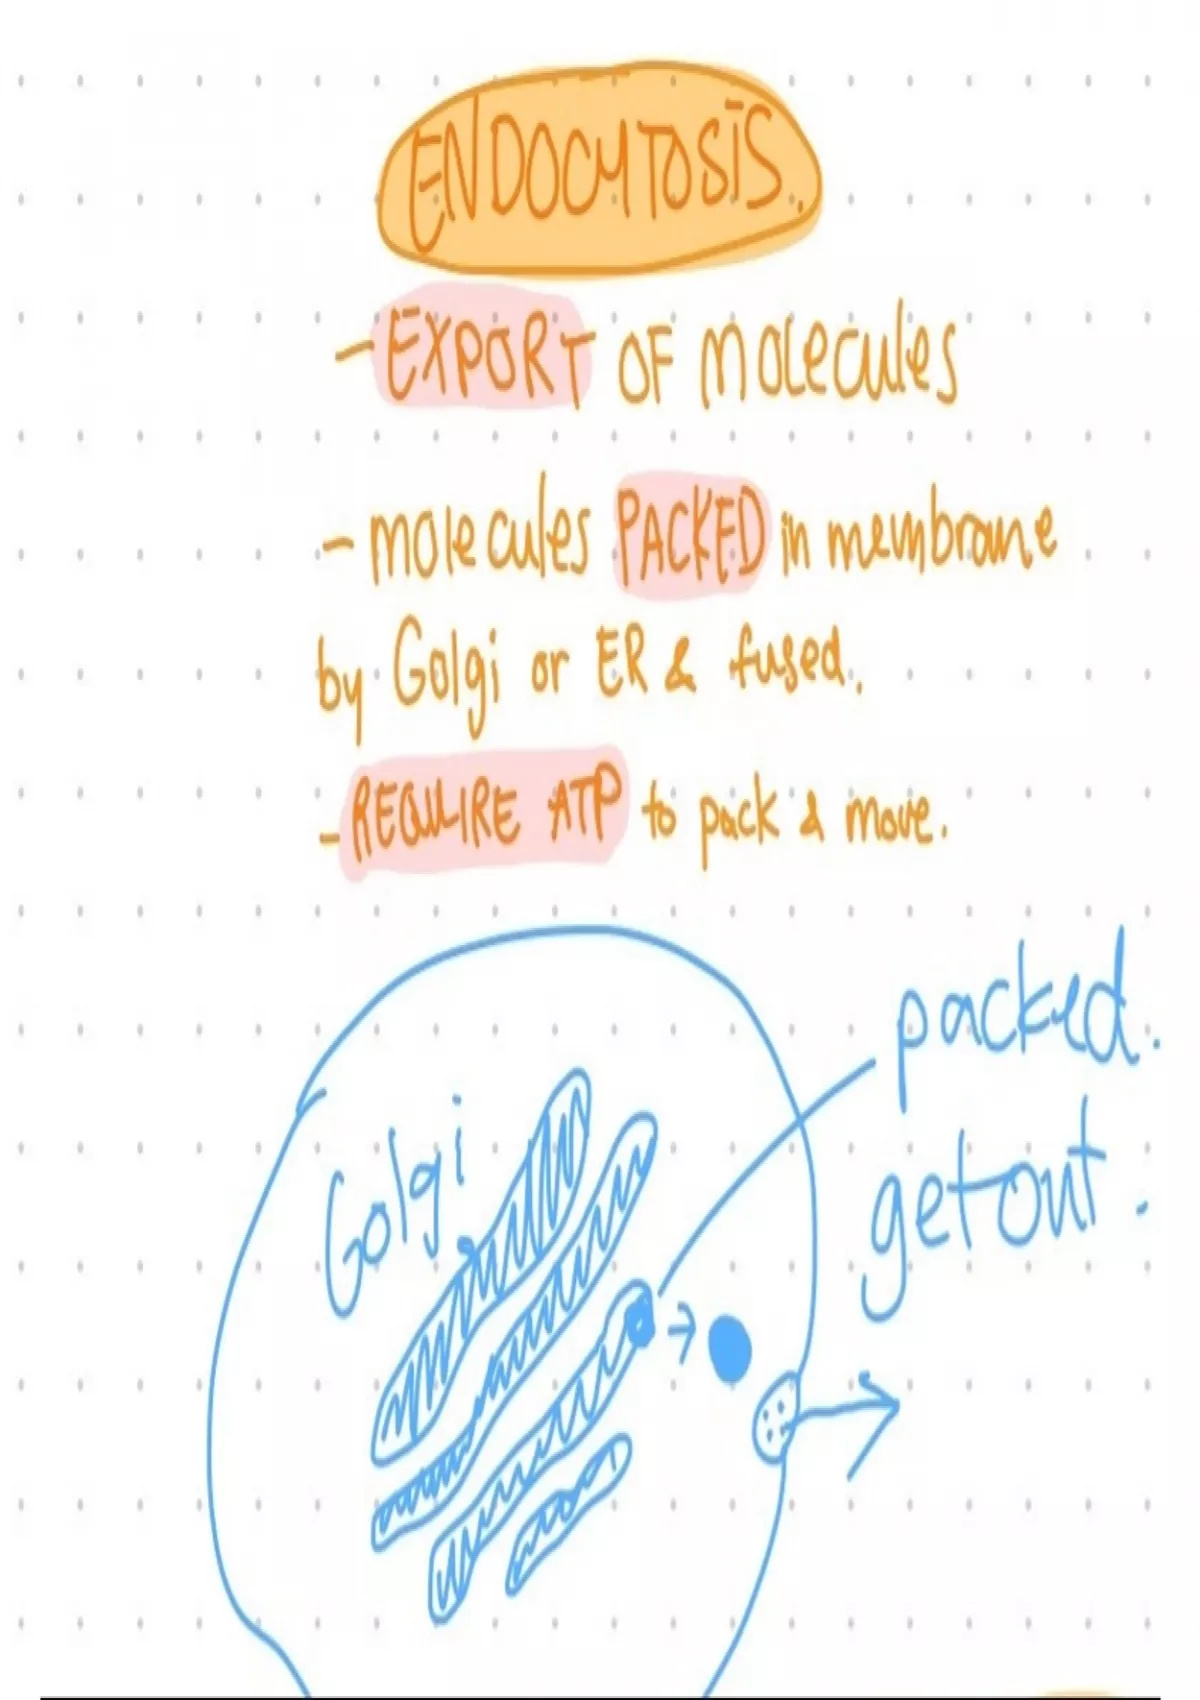 ENDOCYTOSIS.
- EXPORT OF molecules
- molecules PACKED in membrane
by Golgi or ER & fused.
- REQUIRE ATP to pack & move.
packed.
Golgi
getout.